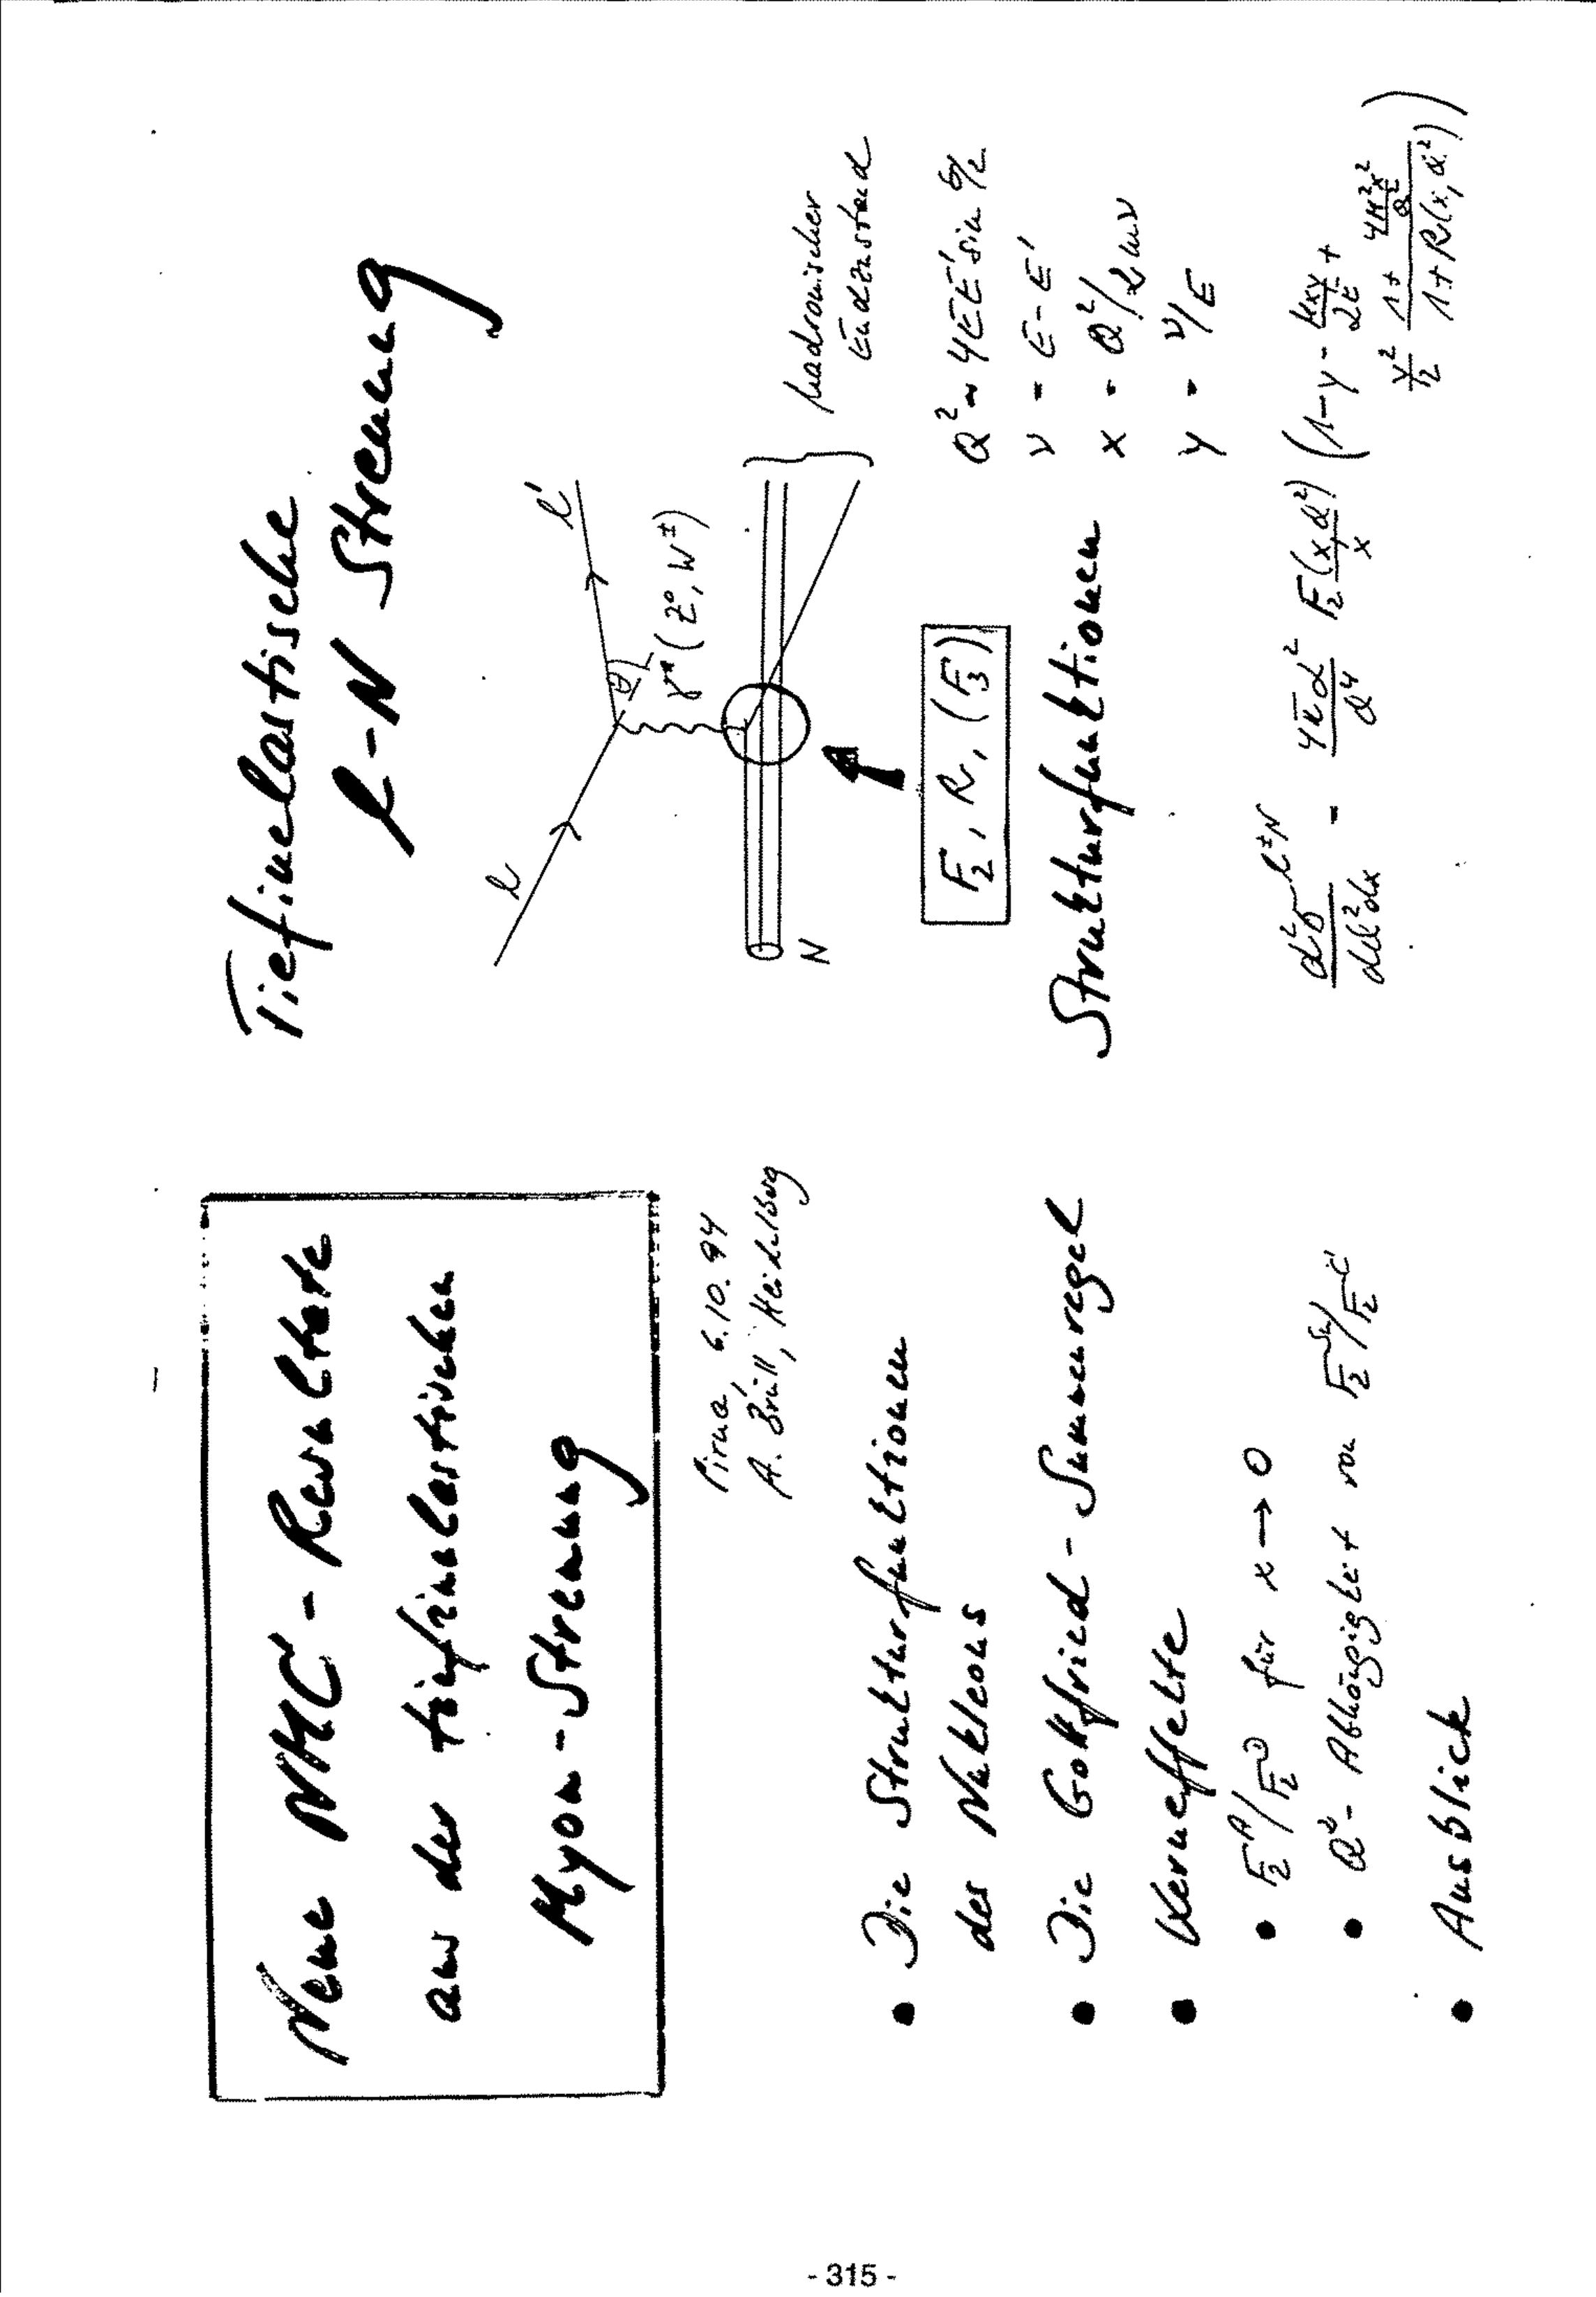 Neue NMC - Resultate
aus der tiefinelastischen
Myon-Streuung
Pirna, 6.10.94
A. Brüll, Heidelberg
• Die Strukturfunktionen
des Nukleons
• Die Gottfried-Summenregel
• Kerneffekte
• F₂ᴬ/F₂ᴰ für x → 0
• Q² - Abhängigkeit von F₂^Sn/F₂^C
• Ausblick
Tiefinelastische
l-N Streuung
l
l'
θ
γ* (Z⁰, W±)
N
hadronischer
Endzustand
F₂, R, (F₃)
Q² ≈ 4EE' sin² θ/2
ν = E - E'
x = Q²/2Mν
y = ν/E
Strukturfunktionen
d²σ^l±N / dQ²dx = 4πα²/Q⁴ F₂(x,Q²)/x (1 - y - Mxy/2E +
y²/2 (1 + 4M²x²/Q²)/(1 + R(x,Q²)))
- 315 -